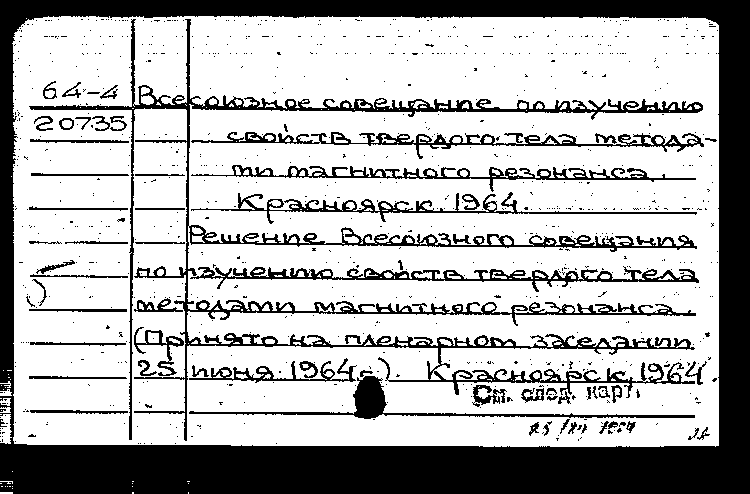 64-4 Всесоюзное совещание по изучению
20735 свойств твердого тела метода-
ми магнитного резонанса.
Красноярск. 1964.
Решение Всесоюзного совещания
по изучению свойств твердого тела
методами магнитного резонанса.
(Принято на пленарном заседании
25 июня 1964 г.). Красноярск, 1964.
См. след. карт.